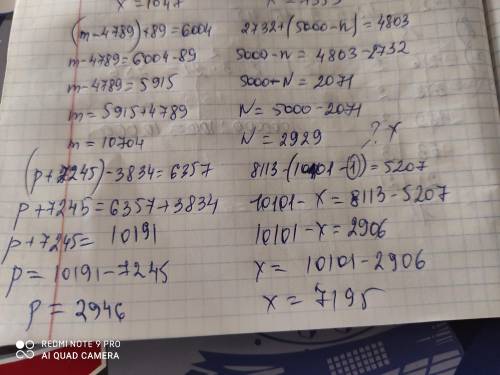 x = 1047
(m-4789)+89=6004
m-4789=6004-89
m-4789=5915
m=5915+4789
m=10704
(p+7245)-3834=6357
p+7245=6357+3834
p+7245= 10191
p= 10191-7245
p= 2946
2732+(5000-n)=4803
5000-n=4803-2732
5000-N=2071
N=5000-2071
N=2929
? x
8113-(10101-1)=5207
10101-x=8113-5207
10101-x=2906
x= 10101-2906
x=7195
REDMI NOTE 9 PRO
AI QUAD CAMERA